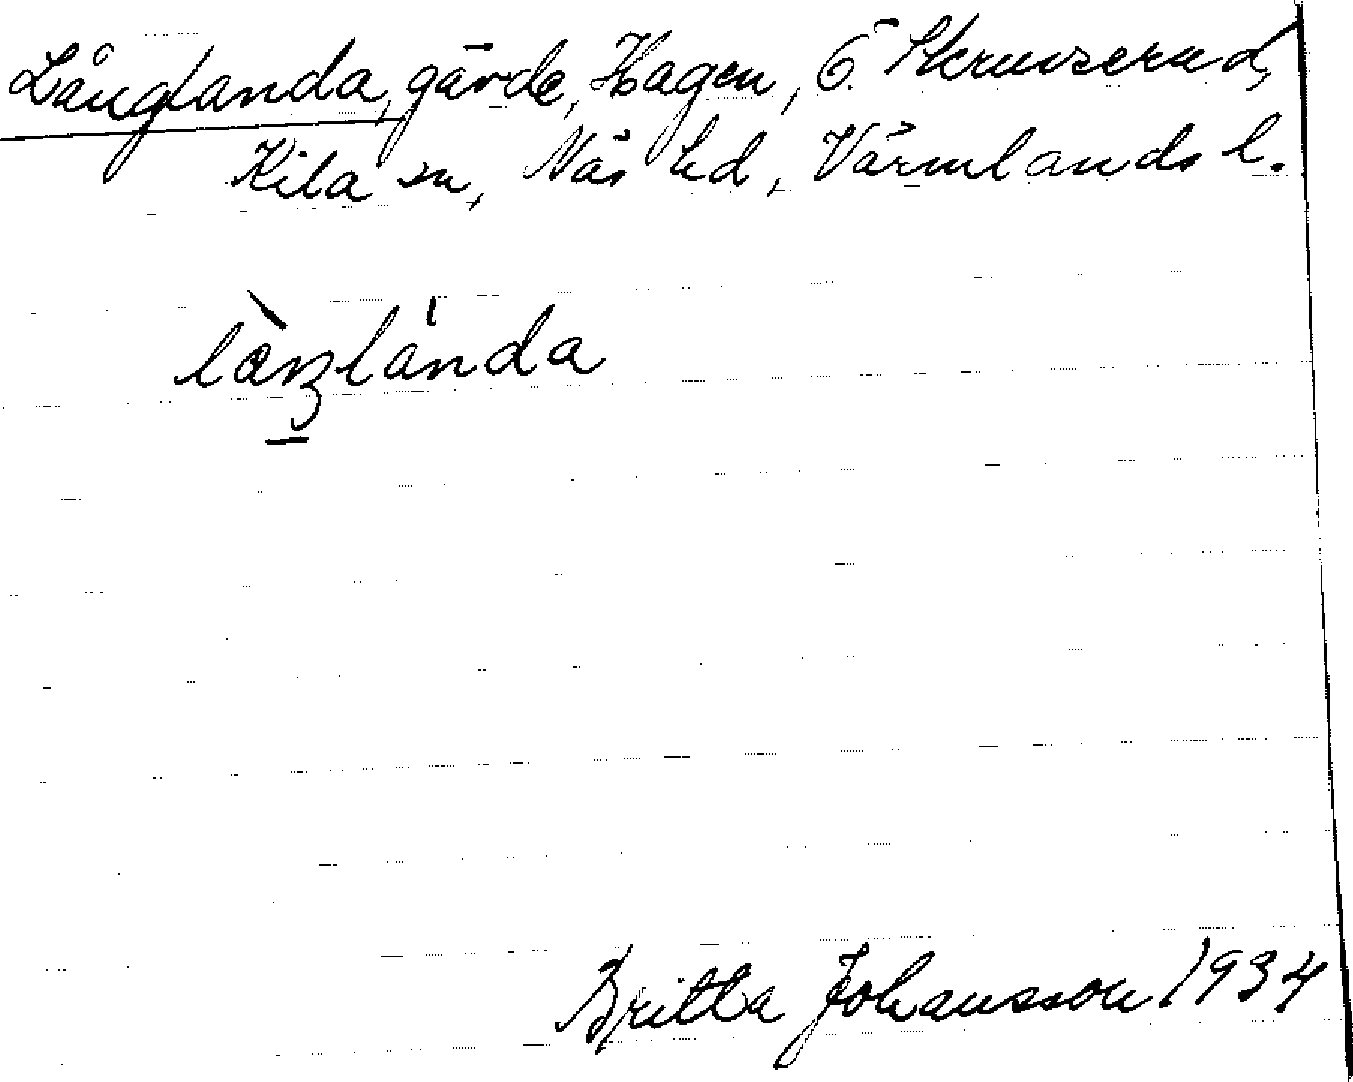 Långlanda, gärde, Hagen, Ö. Skruvserud,
Kila sn, Näs hd, Värmlands l.
làŋlánda
Britta Johansson 1934